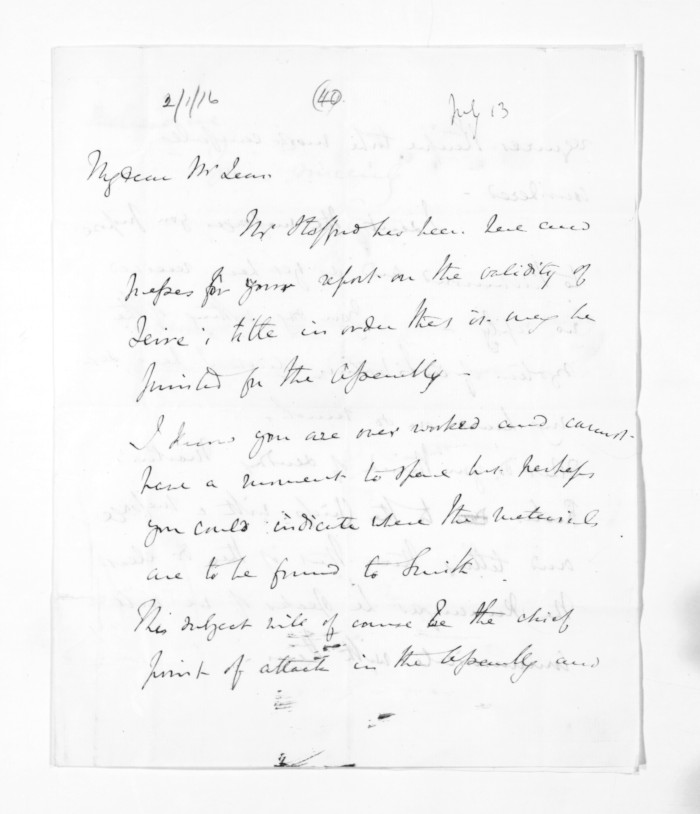 2/1/16 (40) July 13
My dear Mr Lean
Mr Stafford has been here and
presses for your report on the validity of
Teira's title in order that it may be
printed for the Assembly -
I know you are over worked and cannot
have a moment to spare but perhaps
you could indicate where the materials
are to be found to Smith.
This subject will of course be the chief
point of attack in the Assembly and